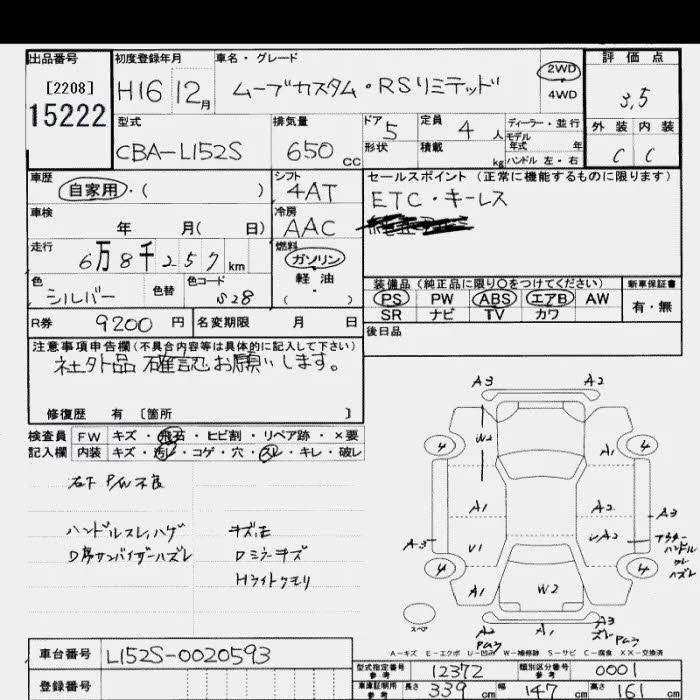 出品番号 初度登録年月 車名・グレード 評価点
[2208] H16 12月 ムーブカスタム・RSリミテッド 2WD 4WD 3.5
15222
型式 排気量 ドア 5 定員 4 人 ディーラー・並行 外装 内装
CBA-L152S 650 cc 形状 積載 kg モデル年式 年 ハンドル 左・右 C C
車歴 自家用・( ) シフト 4AT セールスポイント(正常に機能するものに限ります)
車検 年 月( 日) 冷房 AAC ETC・キーレス
走行 6万8千257km 燃料 ガソリン 軽油 ( )
色 シルバー 色替 色コード S28
装備品(純正品に限り○をつけてください) 新車保証書
PS PW ABS エアB AW 有・無
SR ナビ TV カワ
R券 9200 円 名変期限 月 日 後日品
注意事項申告欄(不具合内容等は具体的に記入して下さい)
社外品確認お願いします。
修復歴 有 [箇所 ]
検査員 FW キズ・飛石・ヒビ割・リペア跡・×要
記入欄 内装 キズ・汚レ・コゲ・穴・スレ・キレ・破レ
右下 P/W不良
ハンドルスレ,ハゲ
D席サンバイザーハズレ
Dミラーキズ
Hライトクモリ
A3 A2
W2
4 4
A1
A1 A2
A3 U1 UA2 A3
アウターハンドル
ハズレ
4 4
A1 W2
スペア A2 A1 A3
A-キズ E-エクボ U-凹み W-補修跡 S-サビ C-腐食 XX-交換済
車台番号 L152S-0020593
登録番号
型式指定番号 参考 12372 類別区分番号 参考 0001
車庫証明用 参考 長さ 339 cm 幅 147 cm 高さ 161 cm